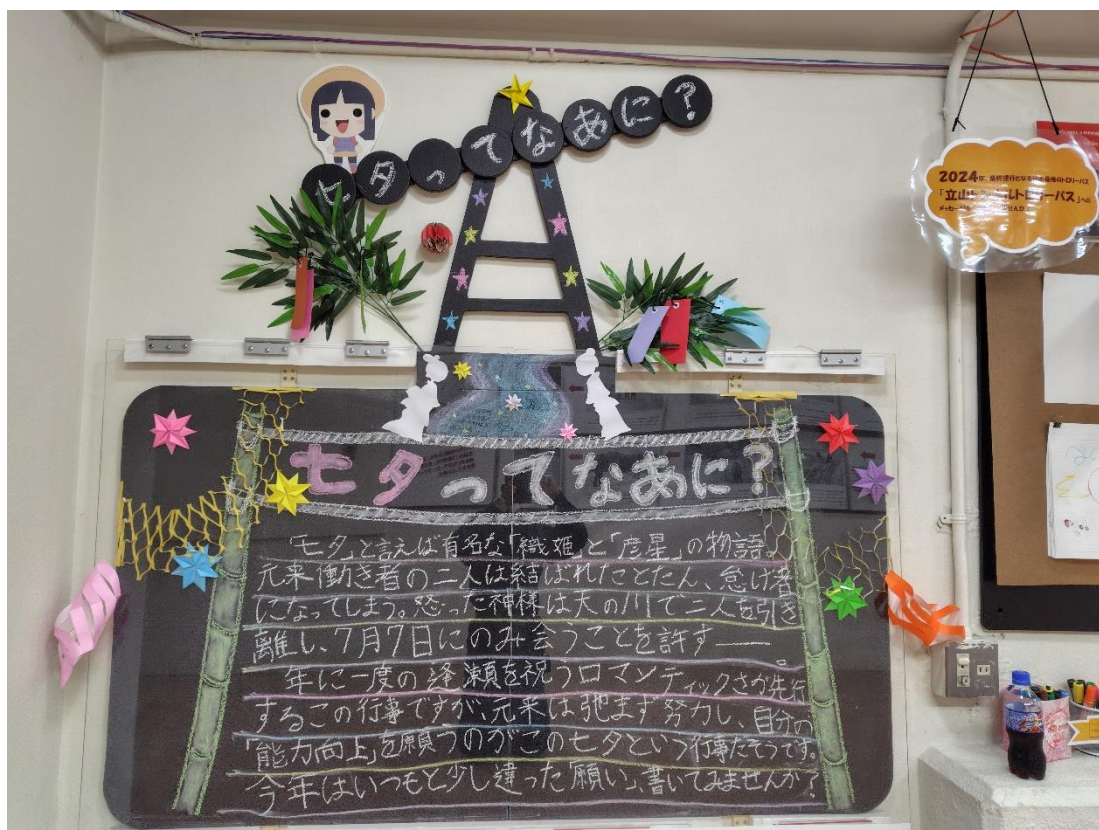 七夕ってなあに?
2024年、最終運行となる日本最後のトロリーバス
「立山トンネルトロリーバス」への
メッセージ
せんか
七夕ってなあに?
「七夕」と言えば有名な「織姫」と「彦星」の物語。
元来働き者の二人は結ばれたとたん、怠け者
になってしまう。怒った神様は天の川で二人を引き
離し、7月7日にのみ会うことを許す――。
年に一度の逢瀬を祝うロマンティックさが先行
するこの行事ですが、元来は弛まず努力し、自分の
「能力向上」を願うのがこの七夕という行事だそうです。
今年はいつもと少し違った「願い」、書いてみませんか?